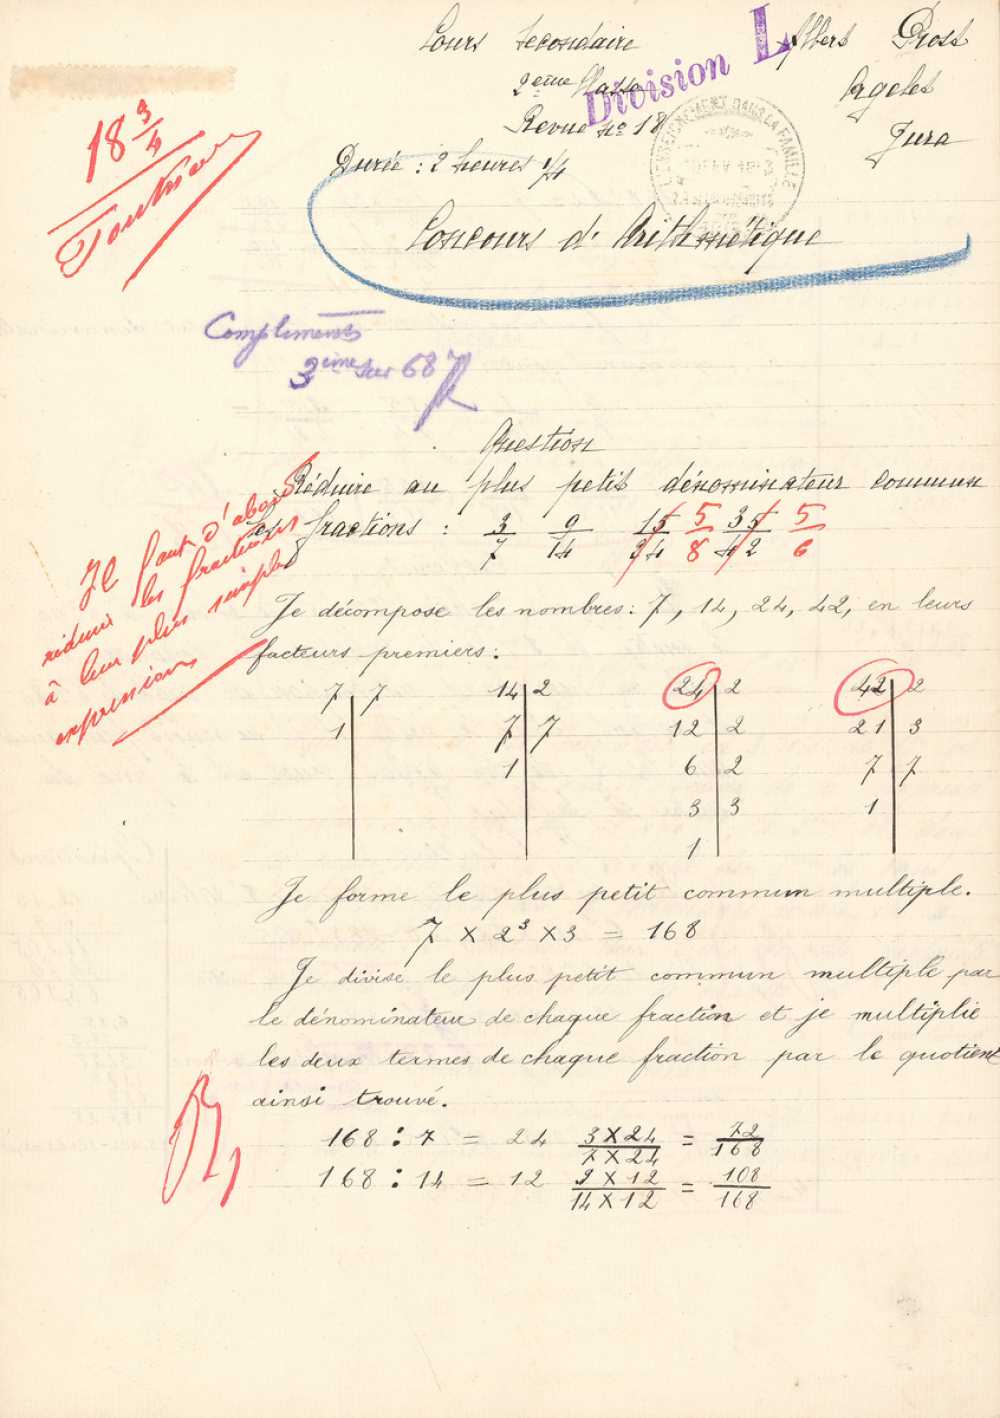 Cours Secondaire
2eme Classe
Revue no 18
Durée : 2 heures 1/4
Division L
Albert Prost
Orgelet
Jura
L'ENSEIGNEMENT DANS LA FAMILLE
18 3/4
Concours d'Arithmétique
Compliments
3ème sur 68
Question
Réduire au plus petit dénominateur commun
les fractions : 3/7 9/14 15/24 5/8 35/42 5/6
Il faut d'abord
réduire les fractions
à leur plus simple
expression
Je décompose les nombres: 7, 14, 24, 42, en leurs
facteurs premiers :
7 | 7 14 | 2 24 | 2 42 | 2
1 | 7 | 7 12 | 2 21 | 3
1 | 6 | 2 7 | 7
3 | 3 1 |
1 |
Je forme le plus petit commun multiple.
7 × 2³ × 3 = 168
Je divise le plus petit commun multiple par
le dénominateur de chaque fraction et je multiplie
les deux termes de chaque fraction par le quotient
ainsi trouvé.
168 : 7 = 24 3×24/7×24 = 72/168
168 : 14 = 12 9×12/14×12 = 108/168